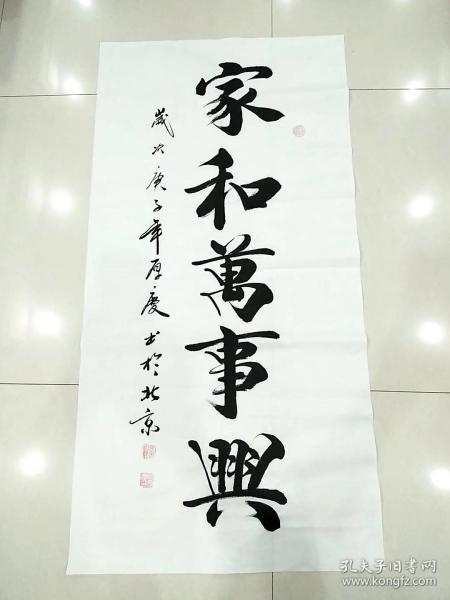 家和萬事興
歲次庚子年厚慶书於北京
孔夫子旧书网
www.kongfz.com